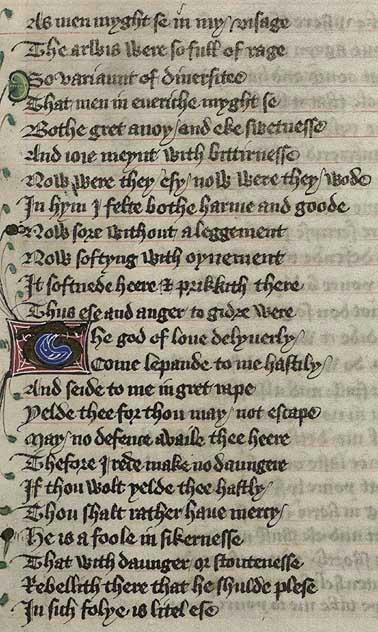 As men myght se in my visage
The arwis were so full of rage
So variaunt of diuersitee
That men in eueriche myght se
Bothe gret anoy / and eke swetnesse
And ioie meynt with bittirnesse
Now were they esy / now were they wode
In hym I felte bothe harme and goode
Now sore without aleggement
Now softyng with oynement
It softnede heere & prikkith there
Thus ese and anger to gidre were
The god of loue delyuerly
Come lepande to me hastily
And seide to me in gret rape
Yelde thee for thou may not escape
May no defence auaile thee heere
Therfore I rede make no daungere
If thou wolt yelde thee hastly
Thou shalt rather haue mercy
He is a foole in sikernesse
That with daunger or stoutenesse
Rebellith there that he shulde plese
In sich folye is litel ese